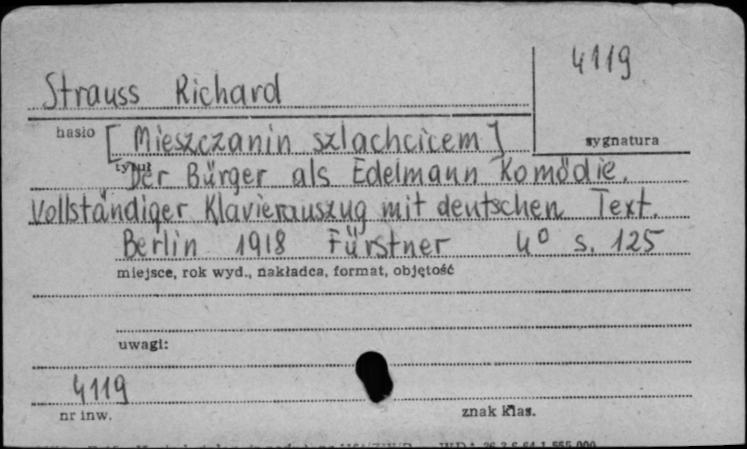 4119
Strauss Richard
hasło [Mieszczanin szlachcicem] sygnatura
tytuł Der Bürger als Edelmann Komödie.
Vollständiger Klavierauszug mit deutschen Text.
Berlin 1918 Fürstner 4° s. 125
miejsce, rok wyd., nakładca, format, objętość
uwagi:
4119
nr inw. znak klas.